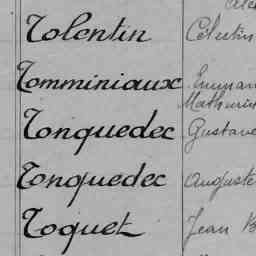 Tolentin Célestin
Tomminiaux Emman
Mathurin
Tonquedec Gustave
Tonquedec Auguste
Toquet Jean B